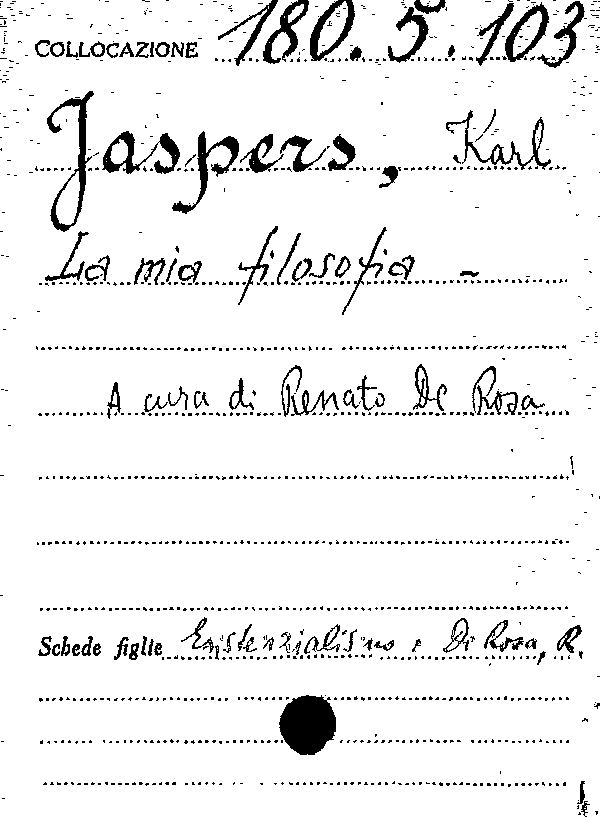 COLLOCAZIONE 180.5.103
Jaspers, Karl
La mia filosofia -
A cura di Renato De Rosa
Schede figlie Esistenzialismo e De Rosa, R.